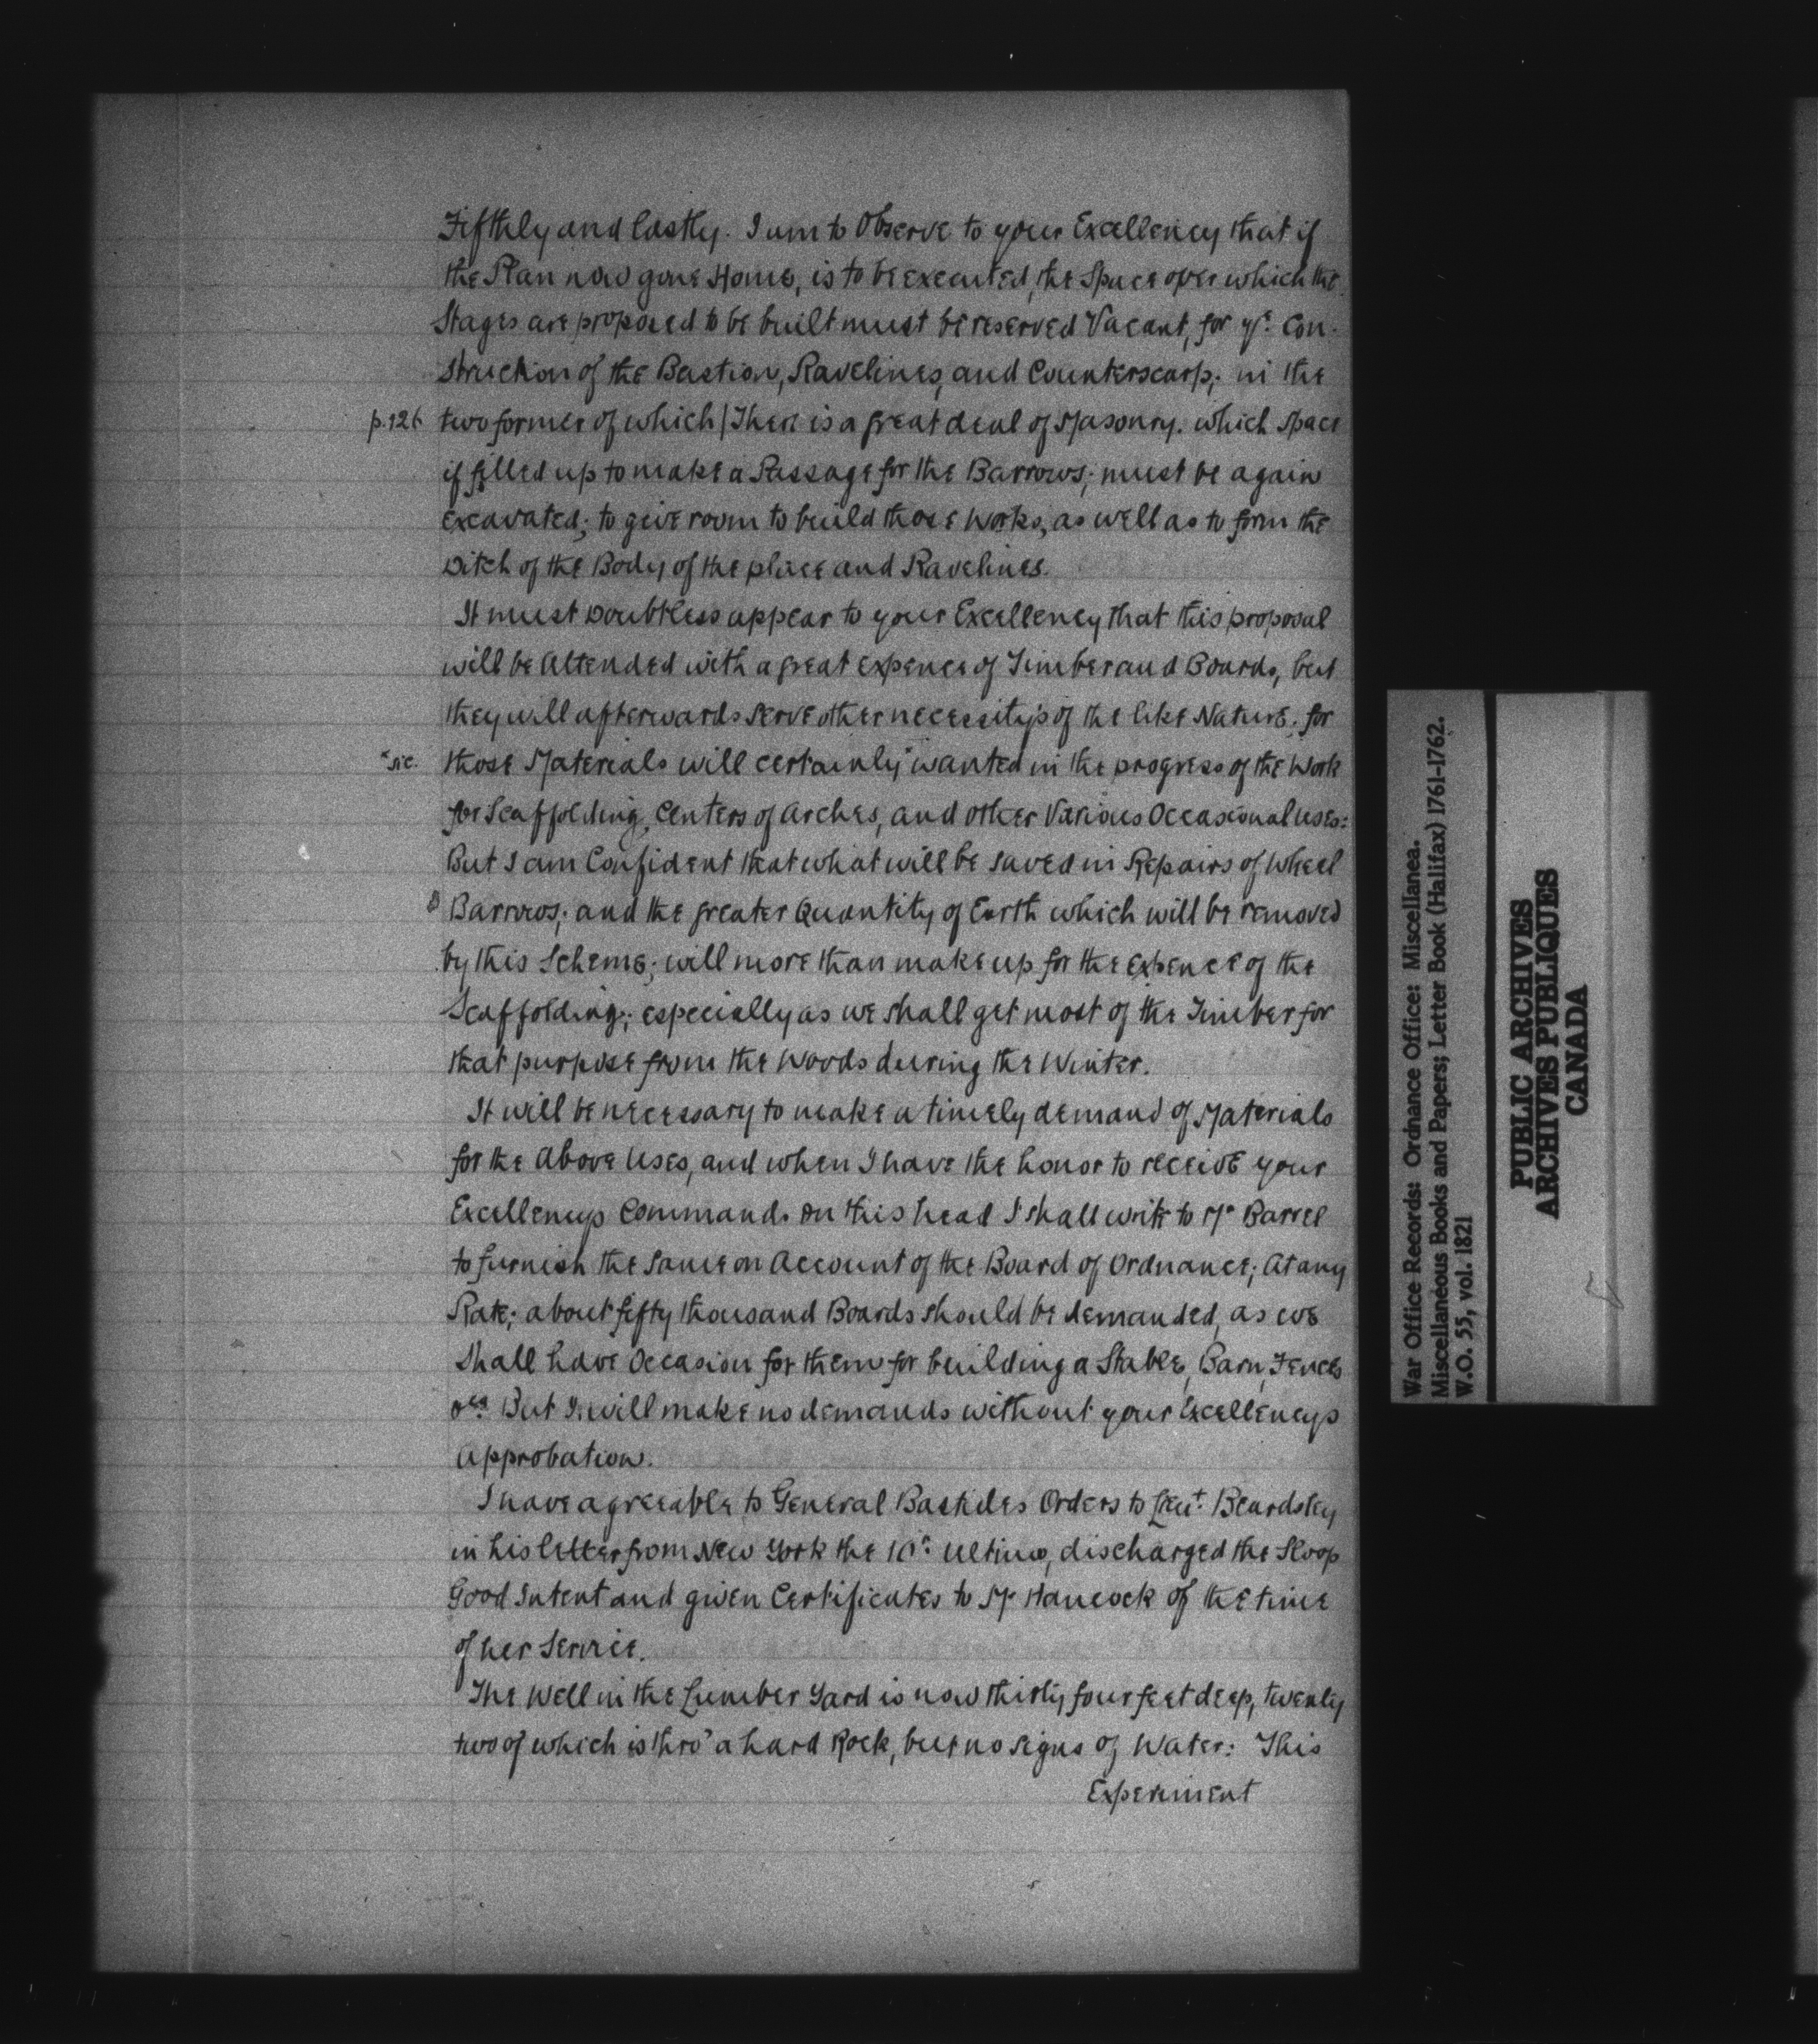 Fifthly and lastly. I am to Observe to your Excellency that if
the Plan now gone Home, is to be executed, the Space over which the
Stages are proposed to be built must be reserved Vacant, for ye. Con-
struction of the Bastion, Ravelines, and Counterscarp; in the
p.126 two former of which | There is a great deal of Masonry. which Space
if filled up to make a Passage for the Barrows; must be again
excavated; to give room to build those Works, as well as to form the
Ditch of the Body of the place and Ravelines.
It must Doubtless appear to your Excellency that this proposal
will be Attended with a great expence of Timber and Boards, but
they will afterwards serve other necessitys of the like Nature; for
*sic. those Materials will certainly* wanted in the progress of the Work
for Scaffolding, Centers of Arches, and other Various Occasional uses:
But I am Confident that what will be saved in Repairs of Wheel
Barrows; and the greater Quantity of Earth which will be removed
by this Scheme; will more than make up for the expence of the
Scaffolding; especially as we shall get most of the Timber for
that purpose from the Woods during the Winter.
It will be necessary to make a timely demand of Materials
for the Above Uses, and when I have the honor to receive your
Excellencys Commands on this head I shall write to Mr Barrel
to furnish the same on Account of the Board of Ordnance; At any
Rate; about fifty thousand Boards should be demanded, as we
shall have Occasion for them for building a Stable, Barn, Fences
But I will make no demands without your Excellencys
Approbation.
I have agreeable to General Bastides Orders to Lieut. Beardsley
in his letter from New York the 10th: Ultimo, discharged the Sloop
Good Intent and given Certificates to Mr Hancock of the time
of her Service.
The Well in the Lumber Yard is now thirty four feet deep, twenty
two of which is thro' a hard Rock, but no signs of Water: This
Experiment
War Office Records: Ordnance Office: Miscellanea.
Miscellaneous Books and Papers; Letter Book (Halifax) 1761-1762.
W.O. 55, vol. 1821
PUBLIC ARCHIVES
ARCHIVES PUBLIQUES
CANADA